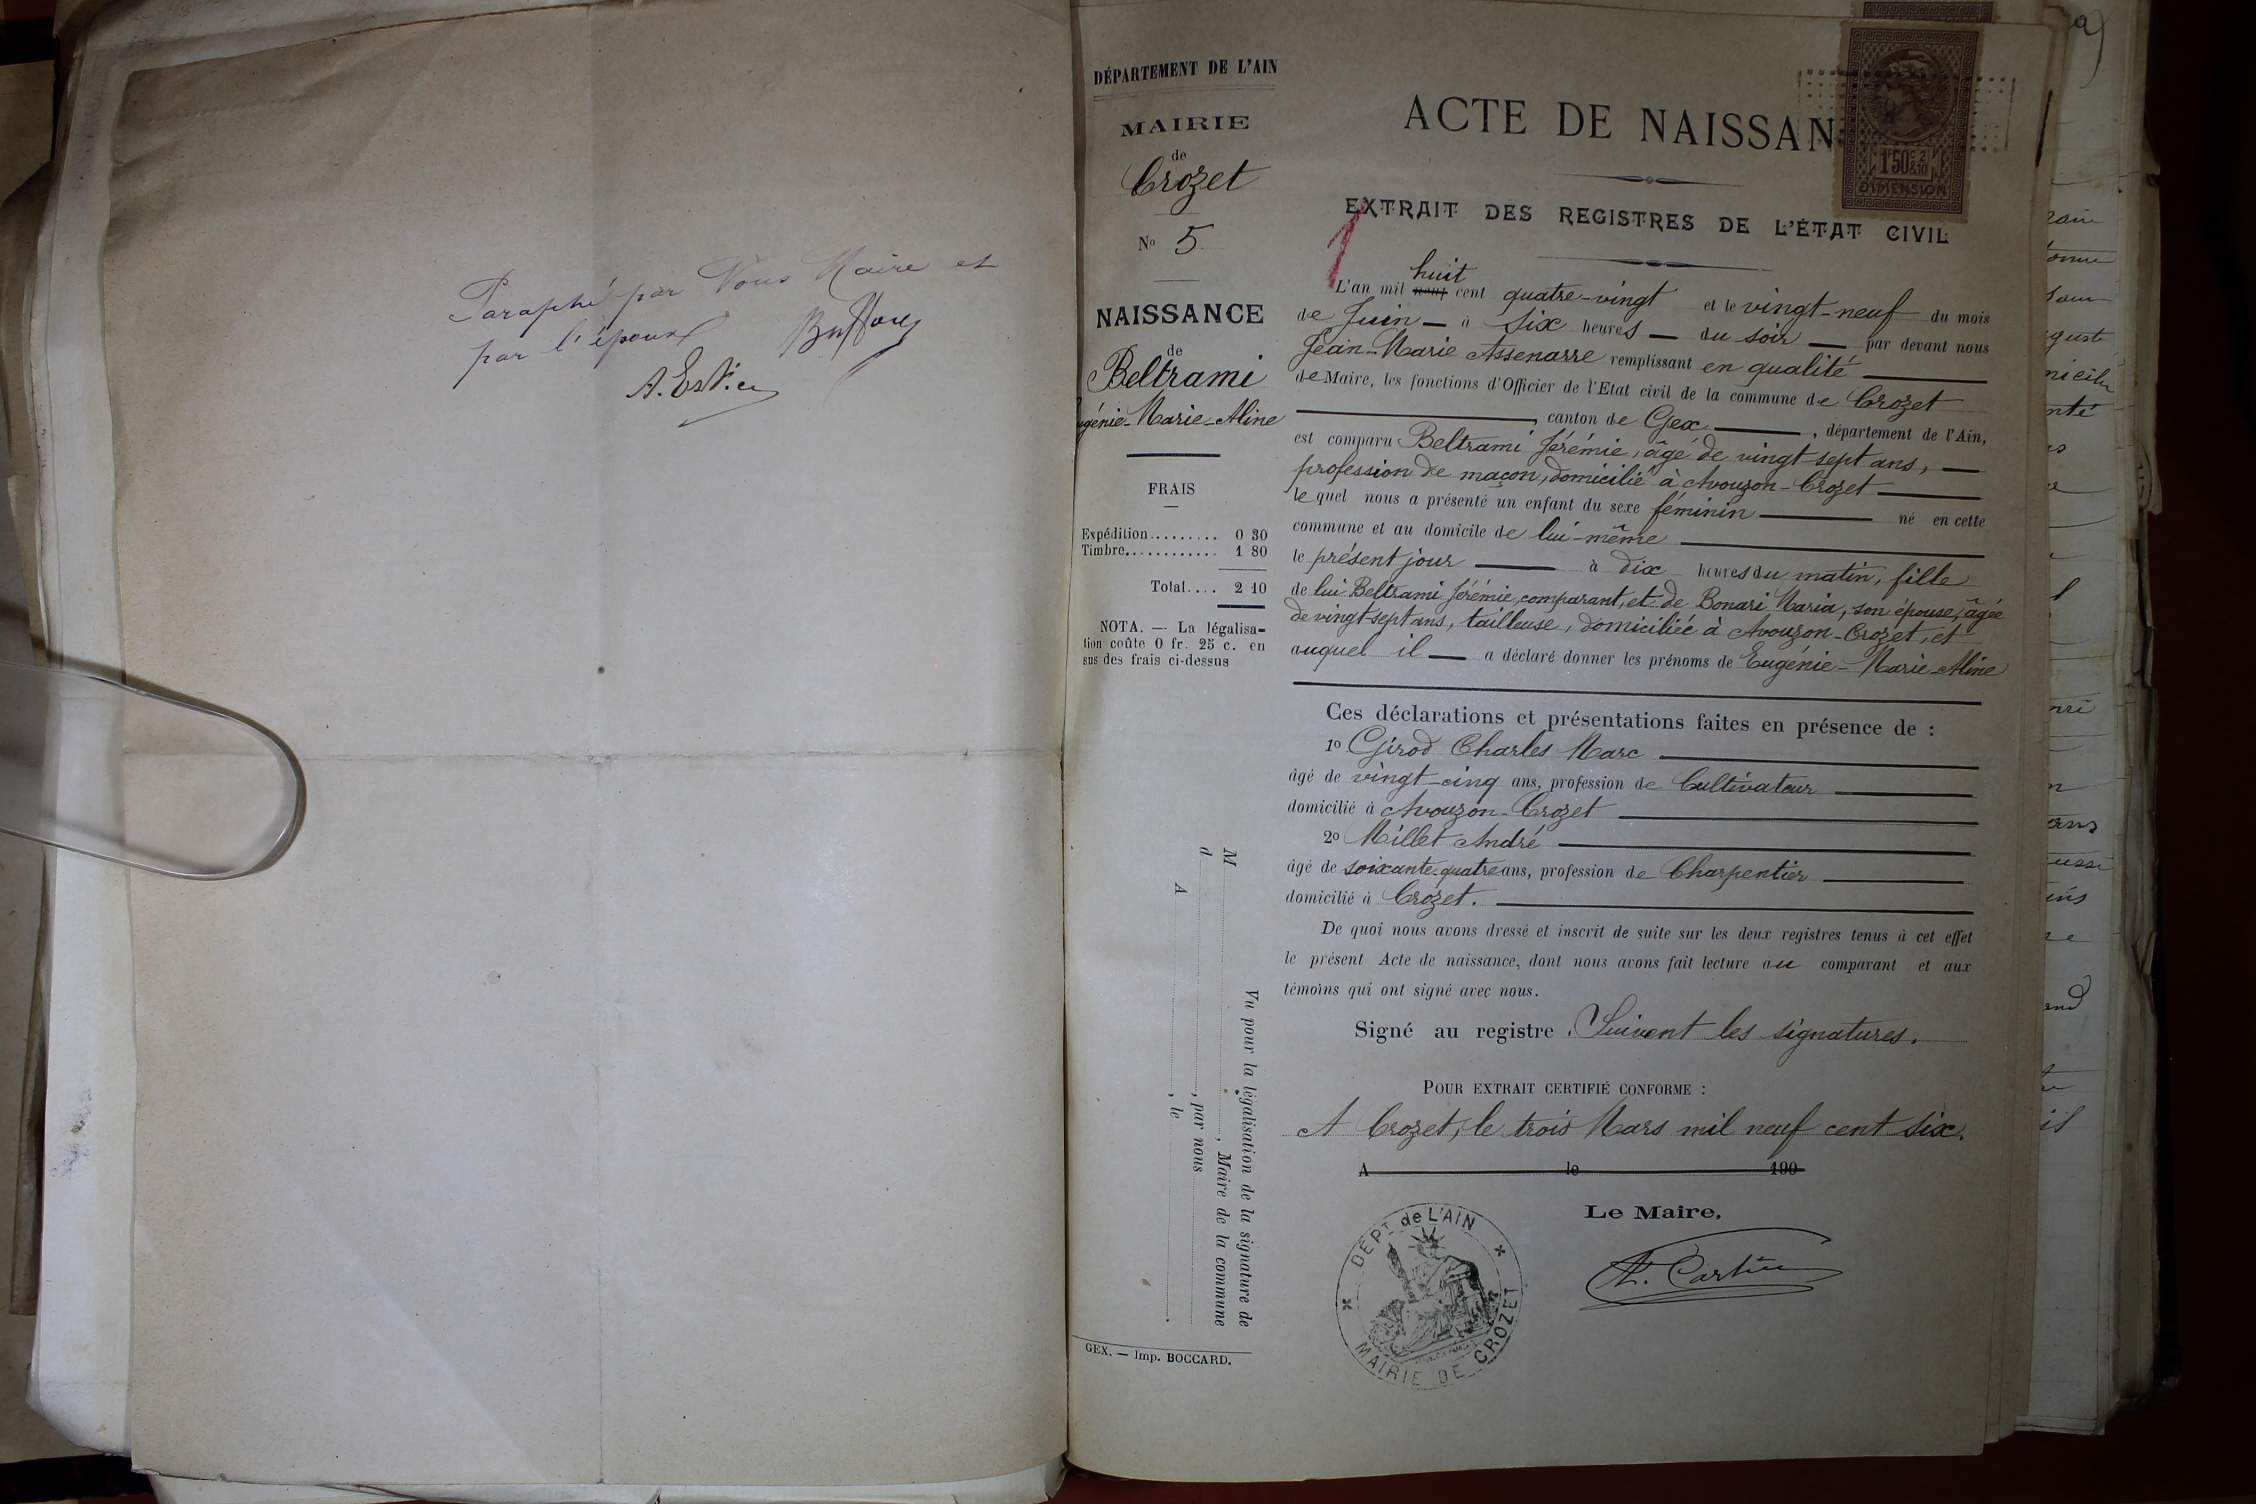 Paraphé par Nous Maire et
par l'époux
DÉPARTEMENT DE L'AIN
MAIRIE
de
Crozet
No 5
NAISSANCE
de
Beltrami
Marie-Aline
FRAIS
Expédition......... 0 30
Timbre............. 1 80
Total.... 2 10
NOTA. — La légalisa-
tion coûte 0 fr. 25 c. en
sus des frais ci-dessus
M
d
A
Vu pour la légalisation de la signature de
, Maire de la commune
, par nous
, le
GEX. — Imp. BOCCARD.
ACTE DE NAISSAN
1F50c 2 &10
DIMENSION
EXTRAIT DES REGISTRES DE L'ÉTAT CIVIL
huit
L'an mil neuf cent quatre-vingt et le vingt-neuf du mois
de Juin — à six heures — du soir — par devant nous
Jean-Marie Assenarre remplissant en qualité
de Maire, les fonctions d'Officier de l'Etat civil de la commune de Crozet
, canton de Gex, département de l'Ain,
est comparu Beltrami Jérémie, âgé de vingt sept ans, —
profession de maçon, domicilié à Avouzon-Crozet
le quel nous a présenté un enfant du sexe féminin né en cette
commune et au domicile de lui-même
le présent jour à dix heures du matin, fille
de lui Beltrami Jérémie, comparant, et de Bonari Maria, son épouse, âgée
de vingt-sept ans, tailleuse, domiciliée à Avouzon-Crozet, et
auquel il — a déclaré donner les prénoms de Eugénie-Marie-Aline
Ces déclarations et présentations faites en présence de :
1o Girod Charles Marc
âgé de vingt-cinq ans, profession de Cultivateur
domicilié à Avouzon-Crozet
2o Millet André
âgé de soixante-quatre ans, profession de Charpentier
domicilié à Crozet.
De quoi nous avons dressé et inscrit de suite sur les deux registres tenus à cet effet
le présent Acte de naissance, dont nous avons fait lecture au comparant et aux
témoins qui ont signé avec nous.
Signé au registre. Suivent les signatures.
POUR EXTRAIT CERTIFIÉ CONFORME :
A Crozet, le trois Mars mil neuf cent six.
A le 190
Le Maire,
DÉPT de L'AIN
MAIRIE DE CROZET